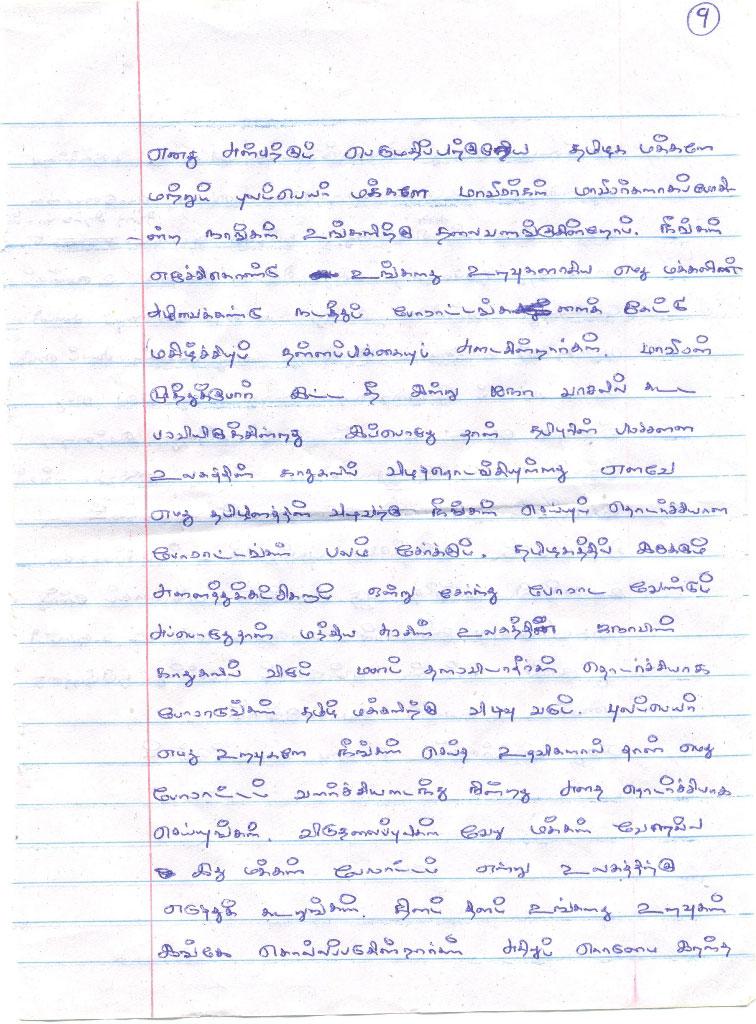 9
எனது அன்பிற்கும் பெருமதிப்பிற்குரிய தமிழக மக்களே
மற்றும் புலம்பெயர் மக்களே மாவீரர்கள் மாவீரர்களாகப்போகி-
ன்ற நாங்கள் உங்களிற்கு தலைவணங்குகின்றோம். நீங்கள்
எழுச்சிகொண்டு உங்களது உறவுகளாகிய எமது மக்களின்
அழிவைக்கண்டு நடத்தும் போராட்டங்களைக் கேட்டு
மகிழ்ச்சியும் தன்னம்பிக்கையும் அடைகின்றார்கள். மாவீரன்
முத்துக்குமார் இட்ட தீ இன்று ஐநா வாசலில் கூட
பரவியிருக்கின்றது இப்பொழுது தான் தமிழரின் பிரச்சனை
உலகத்தின் காதுகளில் விழத்தொடங்கியுள்ளது எனவே
எமது தமிழினத்தின் விடிவிற்கு நீங்கள் செய்யும் தொடர்ச்சியான
போராட்டங்கள் பலம் சேர்க்கும். தமிழகத்தில் இருக்கும்
அனைத்துக்கட்சிகளும் ஒன்று சேர்ந்து போராட வேண்டும்
அப்பொழுதுதான் மத்திய அரசின் உலகத்தின் ஐநாவின்
காதுகளில் விழும் மனம் தளரவிடாதீர்கள் தொடர்ச்சியாக
போராடுங்கள் தமிழ் மக்களிற்கு விடிவு வரும். புலம்பெயர்
எமது உறவுகளே நீங்கள் செய்த உதவிகளால் தான் எமது
போராட்டம் வளர்ச்சியடைந்து நின்றது அதை தொடர்ச்சியாக
செய்யுங்கள். விடுதலைப்புலிகள் வேறு மக்கள் வேறல்ல
இது மக்கள் போராட்டம் என்று உலகத்திற்கு
எடுத்துக் கூறுங்கள். தினம் தினம் உங்களது உறவுகள்
இங்கே கொல்லப்படுகின்றார்கள் அதிலும் கொடுமை இறந்த